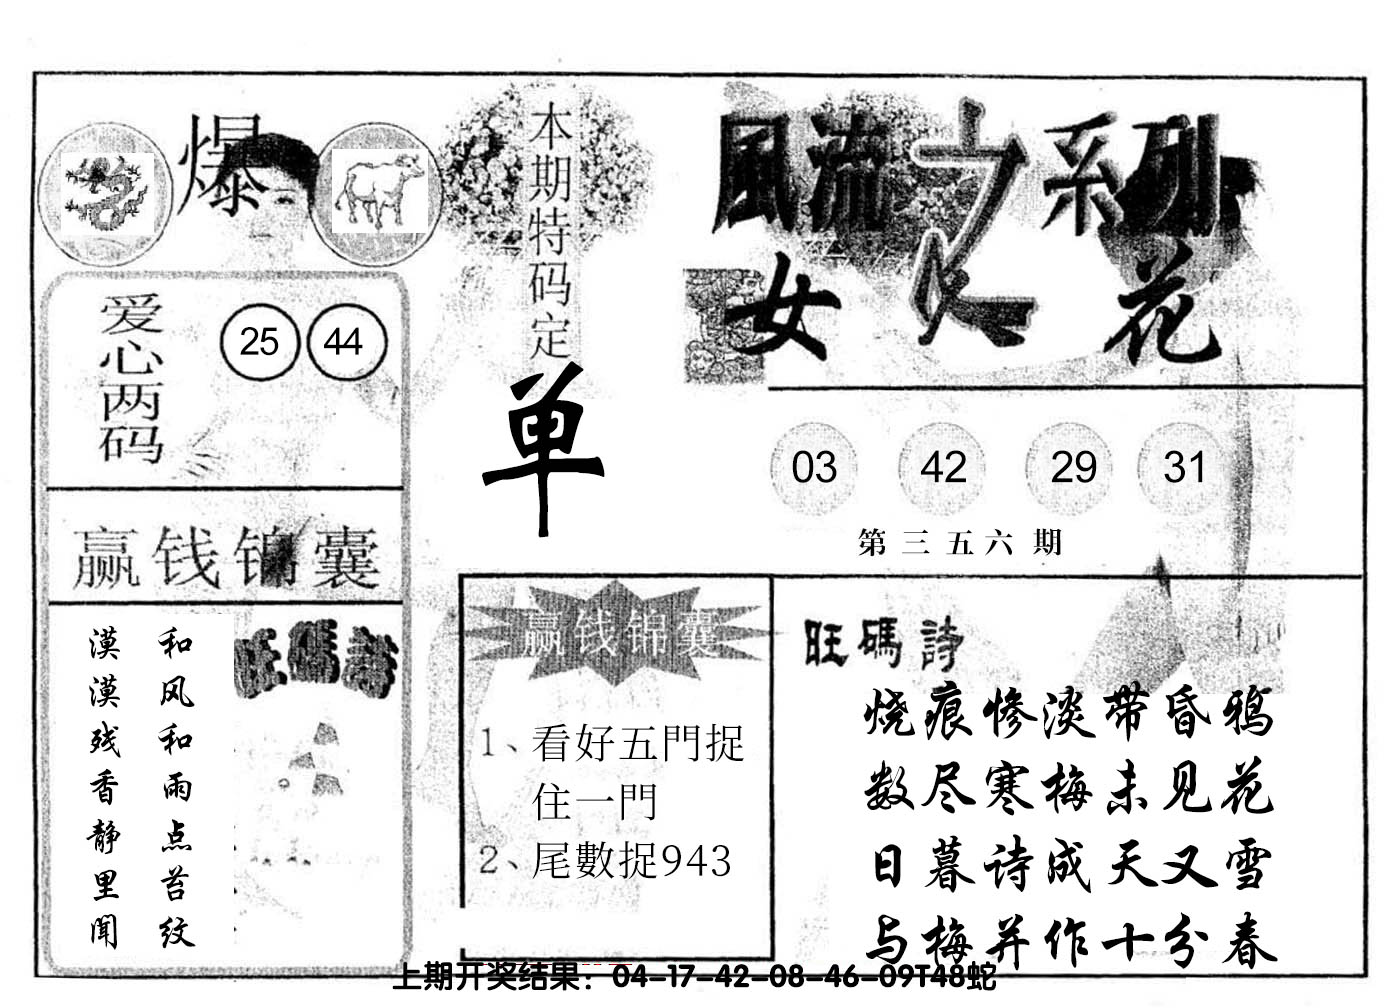 爆
本期特码定
单
風流之系列
女人花
爱心两码
25 44
03 42 29 31
第三五六期
赢钱锦囊
旺碼詩
和风和雨点苔纹
漠漠残香静里闻
赢钱锦囊
1、看好五門捉
住一門
2、尾數捉943
旺碼詩
烧痕惨淡带昏鸦
数尽寒梅未见花
日暮诗成天又雪
与梅并作十分春
上期开奖结果：04-17-42-08-46-09T48蛇